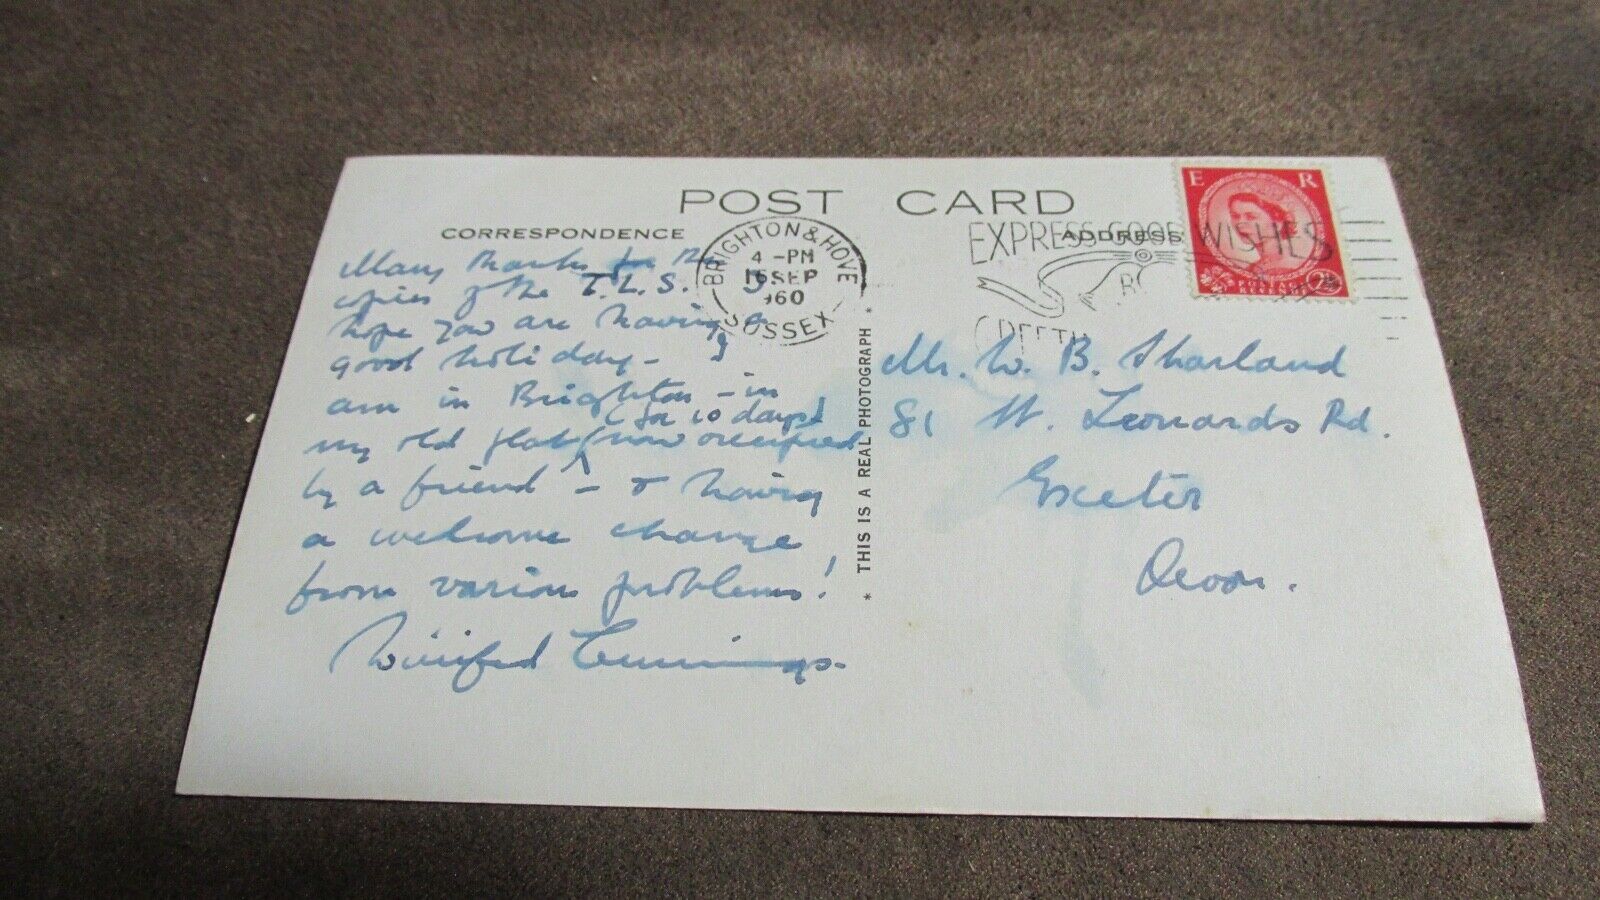 POST CARD
CORRESPONDENCE
ADDRESS
BRIGHTON & HOVE
4 - PM
SEP
1960
SUSSEX
EXPRESS GOOD WISHES
E R
Many thanks for the
copies of the T.L.S. I
hope you are having a
good holiday - I
am in Brighton - in
(for 10 days)
my old flat (now occupied
by a friend - & having
a welcome change
from various problems!
Winifred Cummings.
* THIS IS A REAL PHOTOGRAPH *
Mr. W. B. Sharland
81 St. Leonards Rd.
Exeter
Devon.